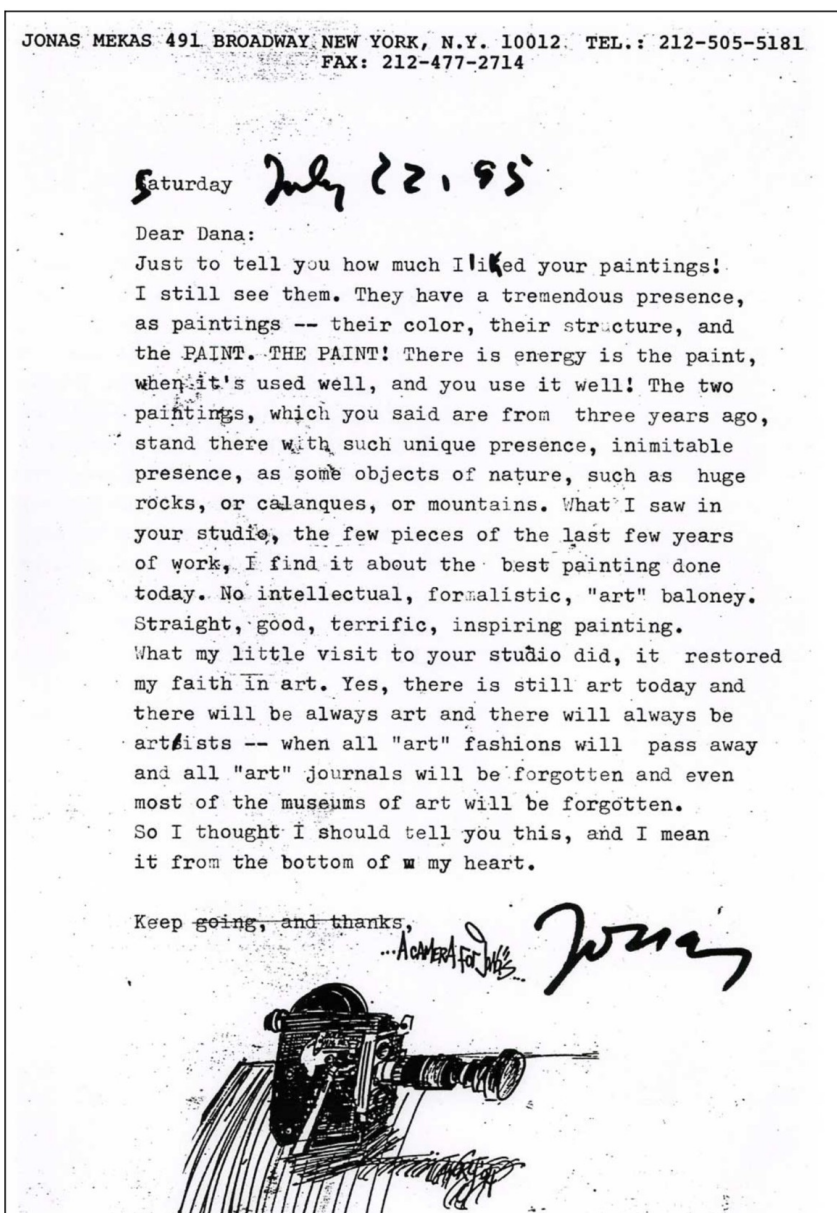 JONAS MEKAS 491 BROADWAY NEW YORK, N.Y. 10012 TEL.: 212-505-5181
FAX: 212-477-2714
Saturday July 22, 95
Dear Dana:
Just to tell you how much I liked your paintings!
I still see them. They have a tremendous presence,
as paintings -- their color, their structure, and
the PAINT. THE PAINT! There is energy is the paint,
when it's used well, and you use it well! The two
paintings, which you said are from three years ago,
stand there with such unique presence, inimitable
presence, as some objects of nature, such as huge
rocks, or calanques, or mountains. What I saw in
your studio, the few pieces of the last few years
of work, I find it about the best painting done
today. No intellectual, formalistic, "art" baloney.
Straight, good, terrific, inspiring painting.
What my little visit to your studio did, it restored
my faith in art. Yes, there is still art today and
there will be always art and there will always be
artists -- when all "art" fashions will pass away
and all "art" journals will be forgotten and even
most of the museums of art will be forgotten.
So I thought I should tell you this, and I mean
it from the bottom of my heart.
Keep going, and thanks,
...A CAMERA FOR JONAS...
Jonas